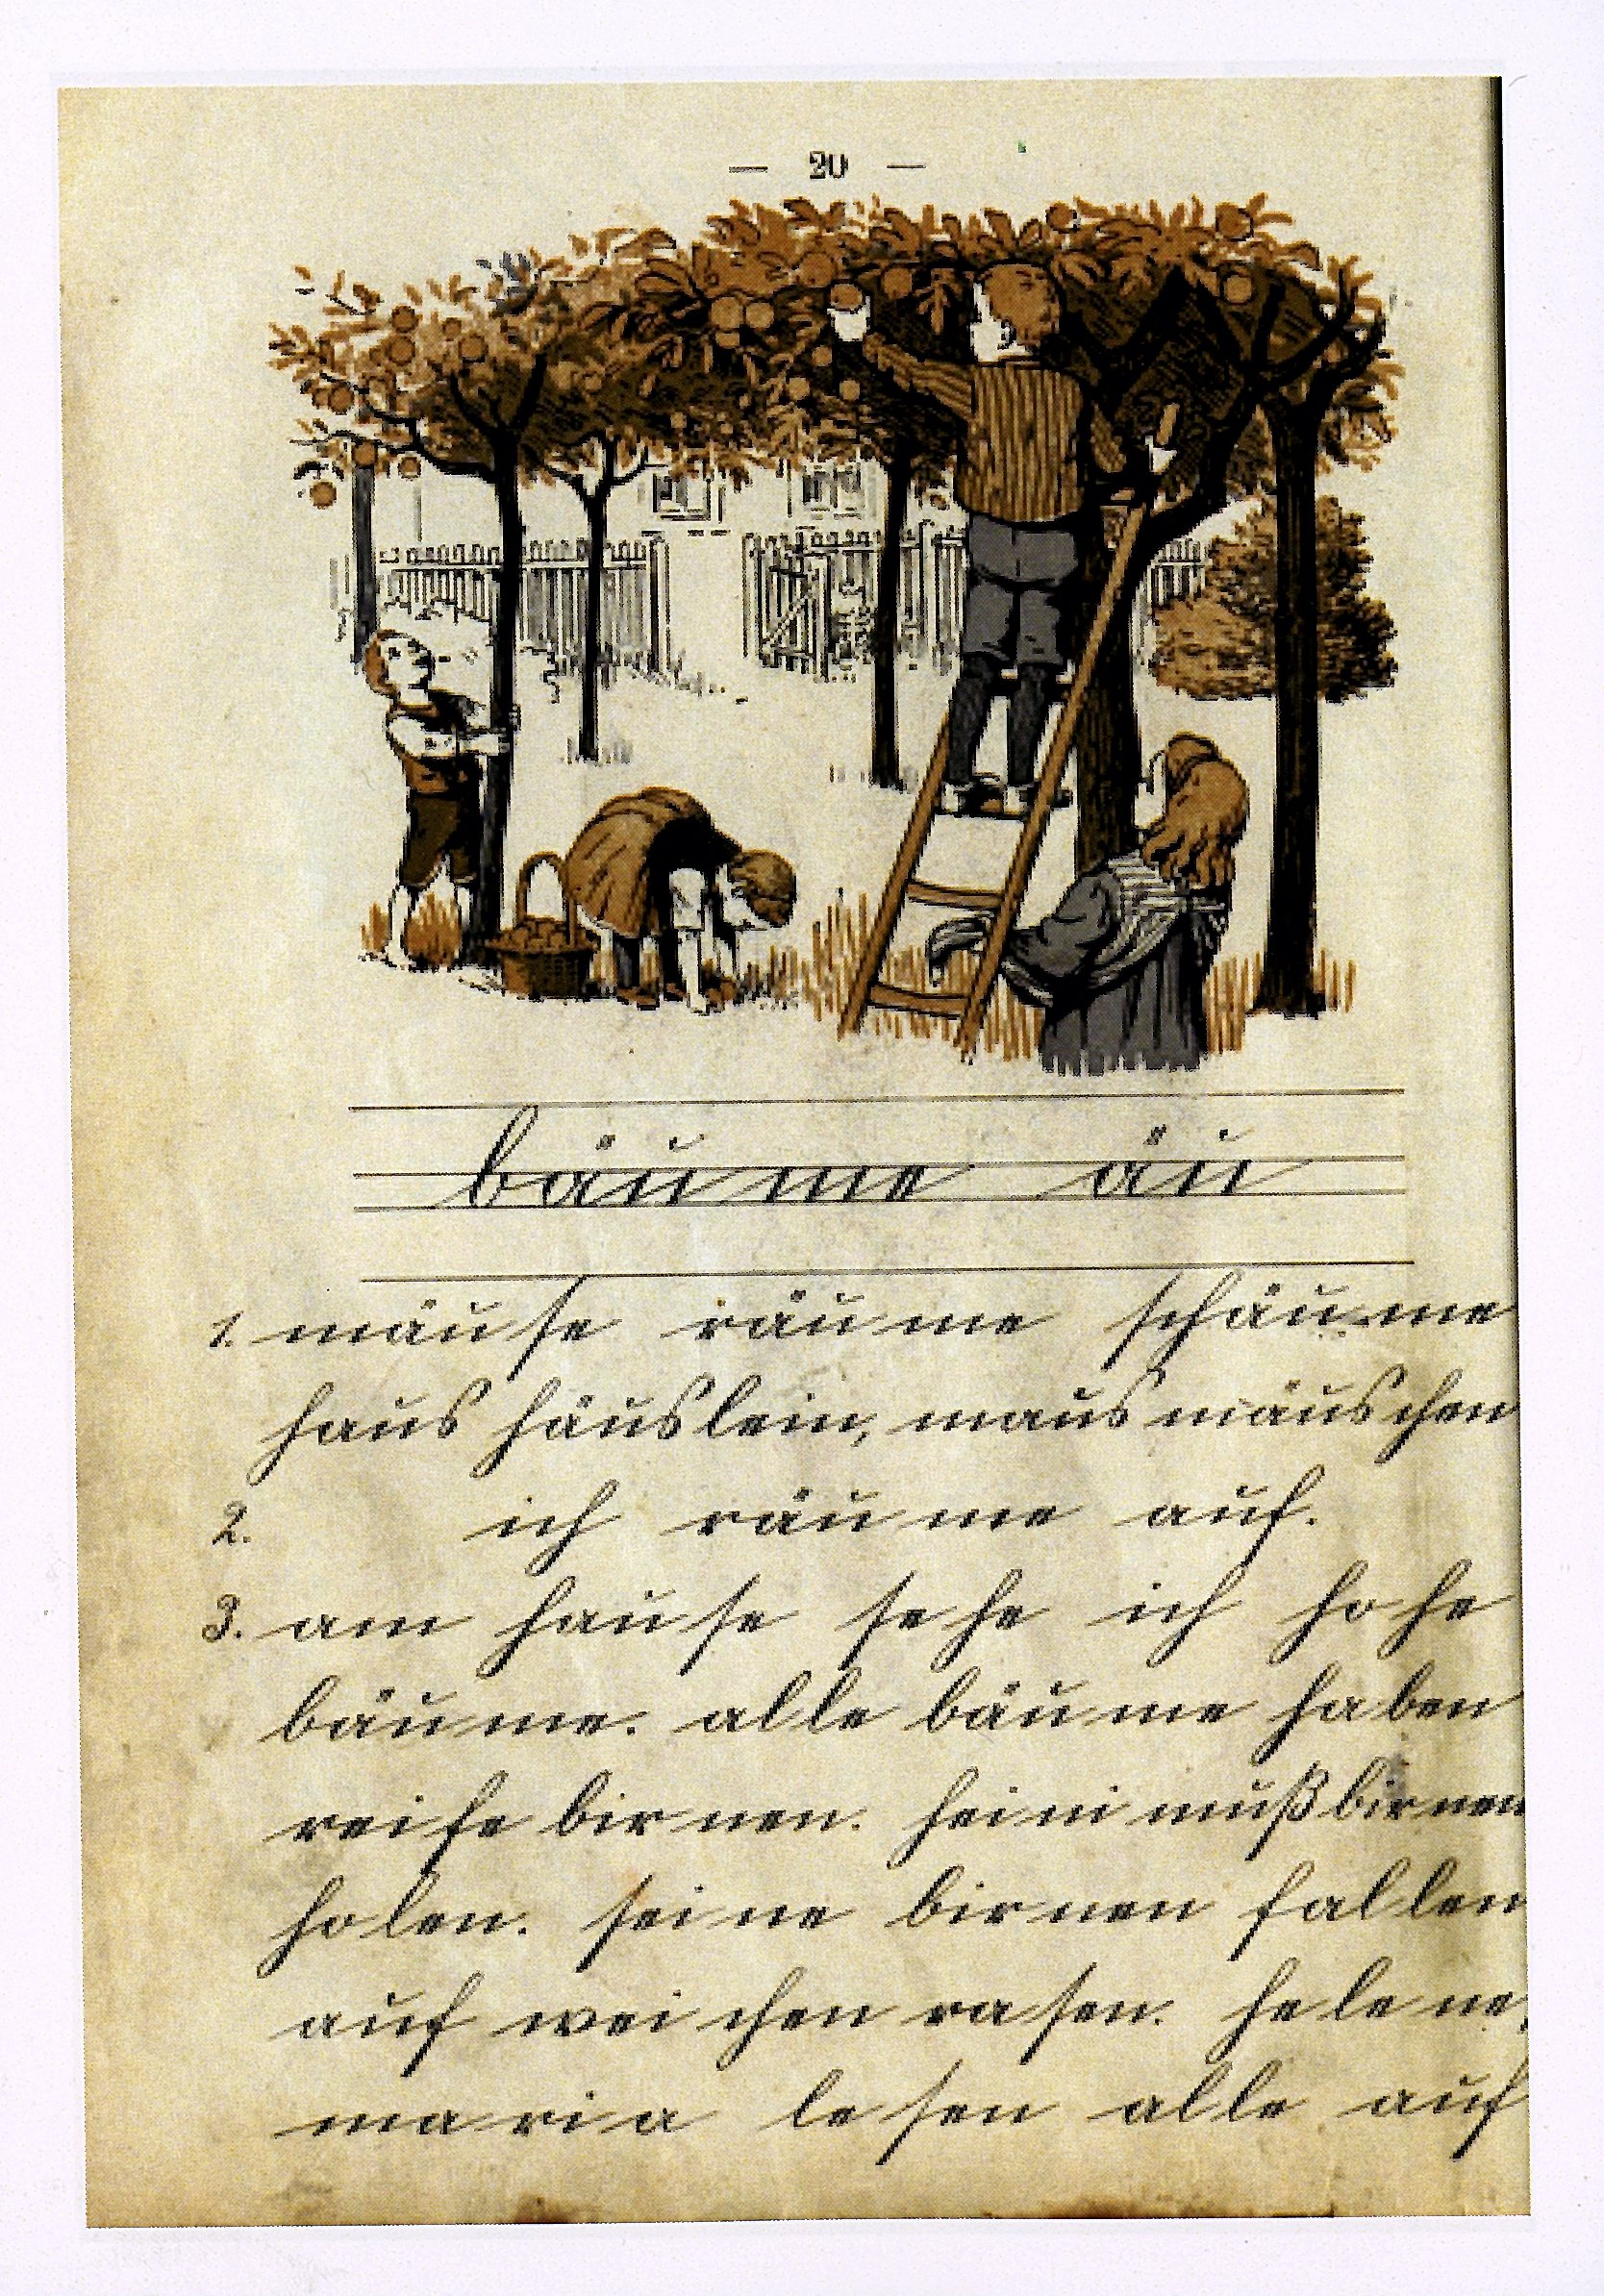 — 20 —
bäume äu
1. mäu se räu me schäu me
haus häus lein, maus mäus chen
2. ich räu me auf.
3. am hau se se he ich ho he
bäu me. al le bäu me ha ben
rei fe bir nen. hei ni muß bir nen
ho len. sei ne bir nen fal len
auf wei chen ra sen. he le ne,
ma ri a le sen al le auf